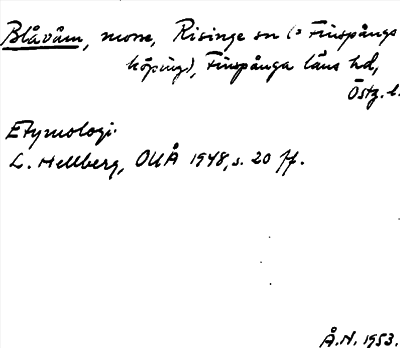 Blåvám, mosse, Risinge sn (o Finspångs
köping), Finspånga läns hd,
Östg. l.
Etymologi.
L. Hellberg, OUÅ 1948, s. 20 ff.
Å.N. 1953.